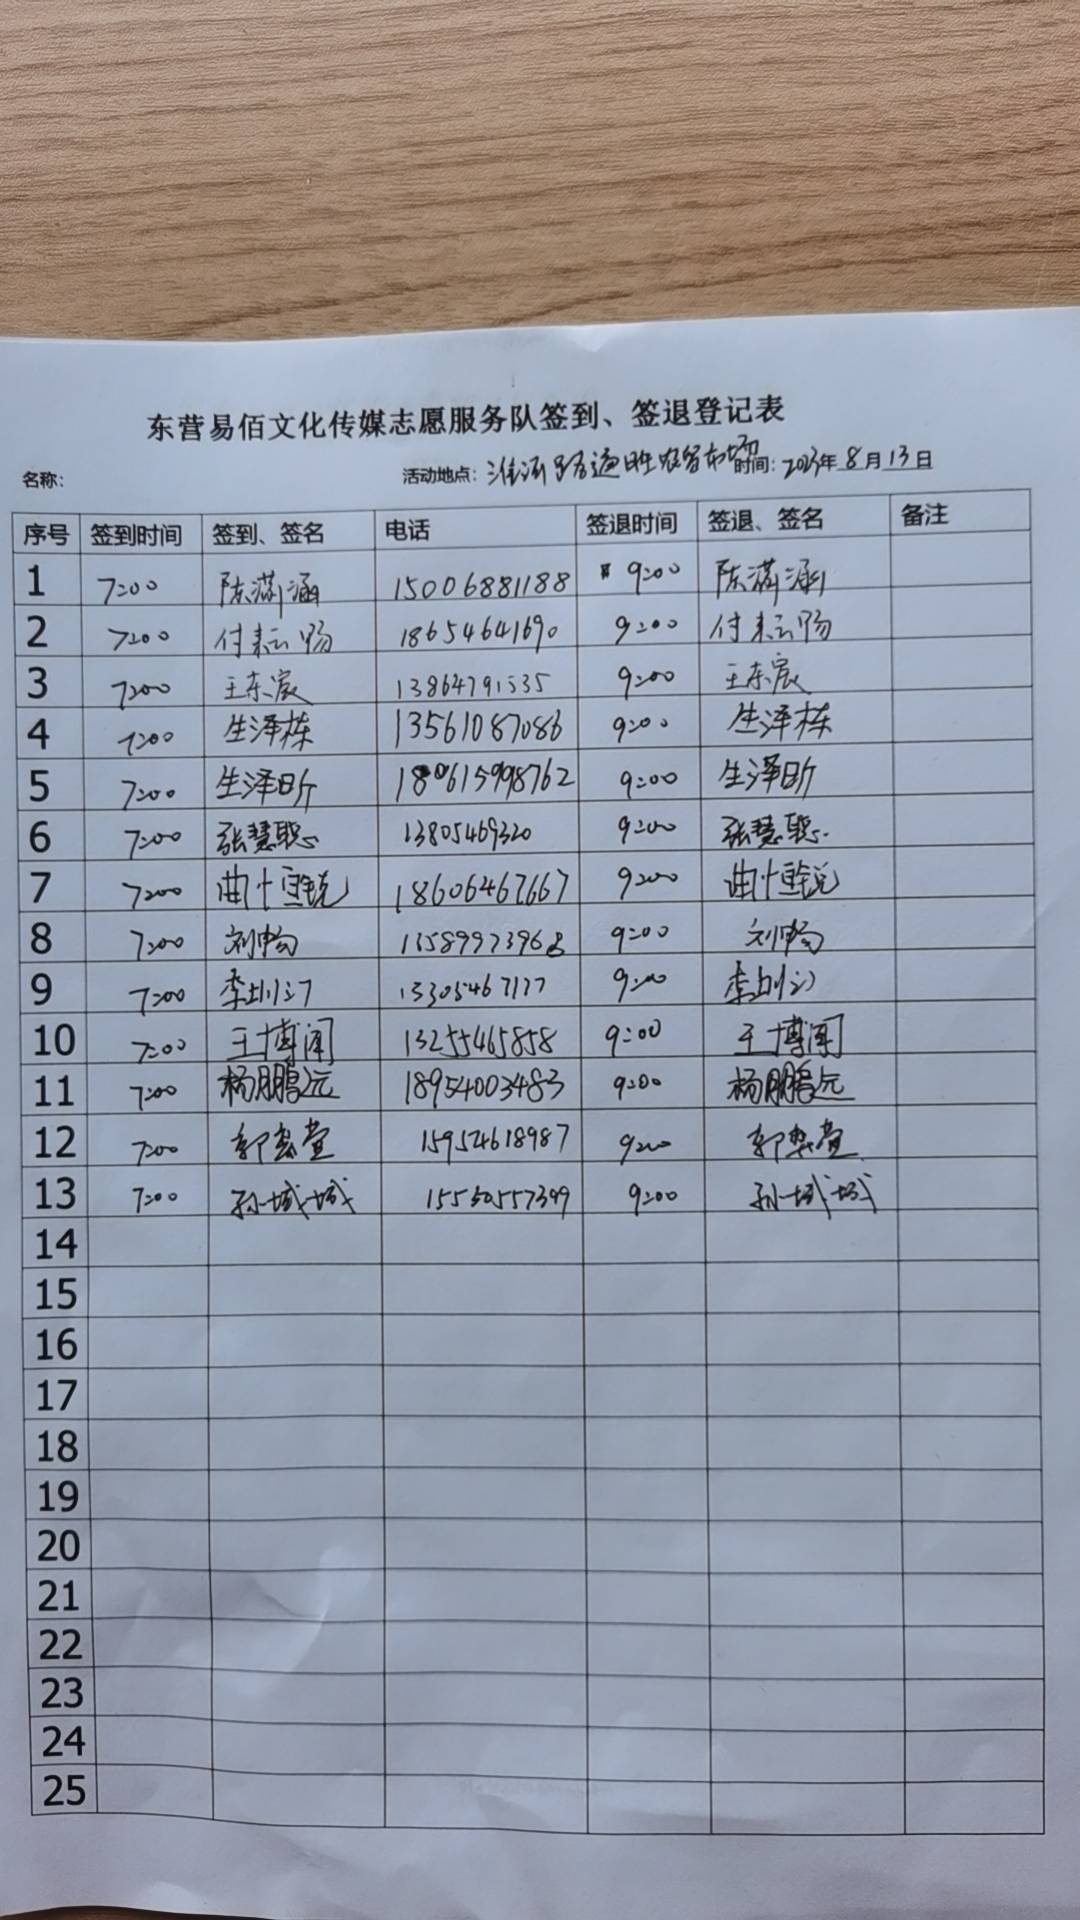 东营易佰文化传媒志愿服务队签到、签退登记表
名称: 活动地点: 路 时间: 2023年8月13日
序号 签到时间 签到、签名 电话 签退时间 签退、签名 备注
1 7:00 陈潇涵 15006881188 9:00 陈潇涵
2 7:00 付耘畅 18654641690 9:00 付耘畅
3 7:00 王东宸 13864791535 9:00 王东宸
4 7:00 生泽栋 13561087086 9:00 生泽栋
5 7:00 生泽昕 9:00 生泽昕
6 7:00 张慧聪 13805469320 9:00 张慧聪
7 7:00 曲 锐 18606467667 9:00 曲 锐
8 7:00 刘畅 13589973968 9:00 刘畅
9 7:00 李 9:00 李
10 7:00 王博闻 13255465858 9:00 王博闻
11 7:00 杨鹏远 18954003483 9:00 杨鹏远
12 7:00 郭 萱 159524618987 9:00 郭 萱
13 7:00 孙城城 15550557399 9:00 孙城城
14
15
16
17
18
19
20
21
22
23
24
25